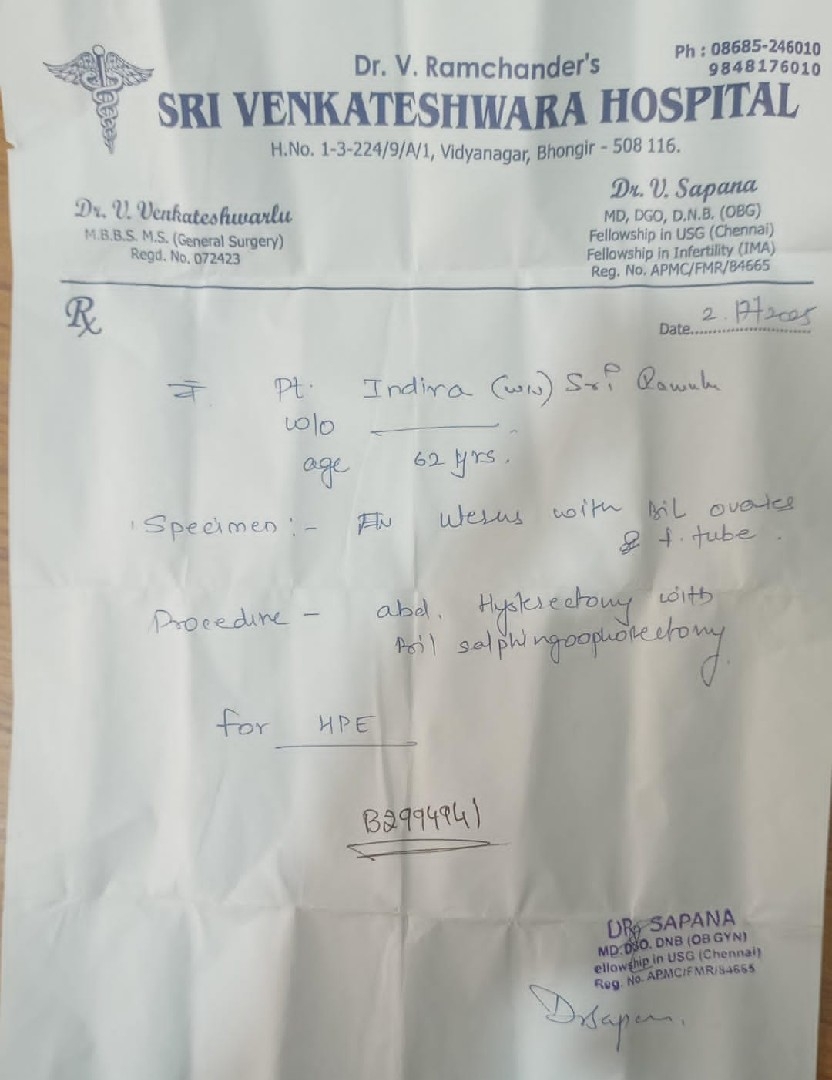 Ph : 08685-246010
9848176010
Dr. V. Ramchander's
SRI VENKATESHWARA HOSPITAL
H.No. 1-3-224/9/A/1, Vidyanagar, Bhongir - 508 116.
Dr. V. Venkateshwarlu
M.B.B.S. M.S. (General Surgery)
Regd. No. 072423
Dr. V. Sapana
MD, DGO, D.N.B. (OBG)
Fellowship in USG (Chennai)
Fellowship in Infertility (IMA)
Reg. No. APMC/FMR/84665
Rx
Date 2.
Pt. Indira (w/o) Sri
w/o
age 62 yrs.
Specimen :- uterus with Bil ovaries
& f. tube.
Procedure - abd. Hysterectomy with
Bil salphingoophorectomy.
for HPE
B2994941
DR. SAPANA
MD. DGO. DNB (OB GYN)
ellowship in USG (Chennai)
Reg. No. APMC/FMR/84665
DrSapana.